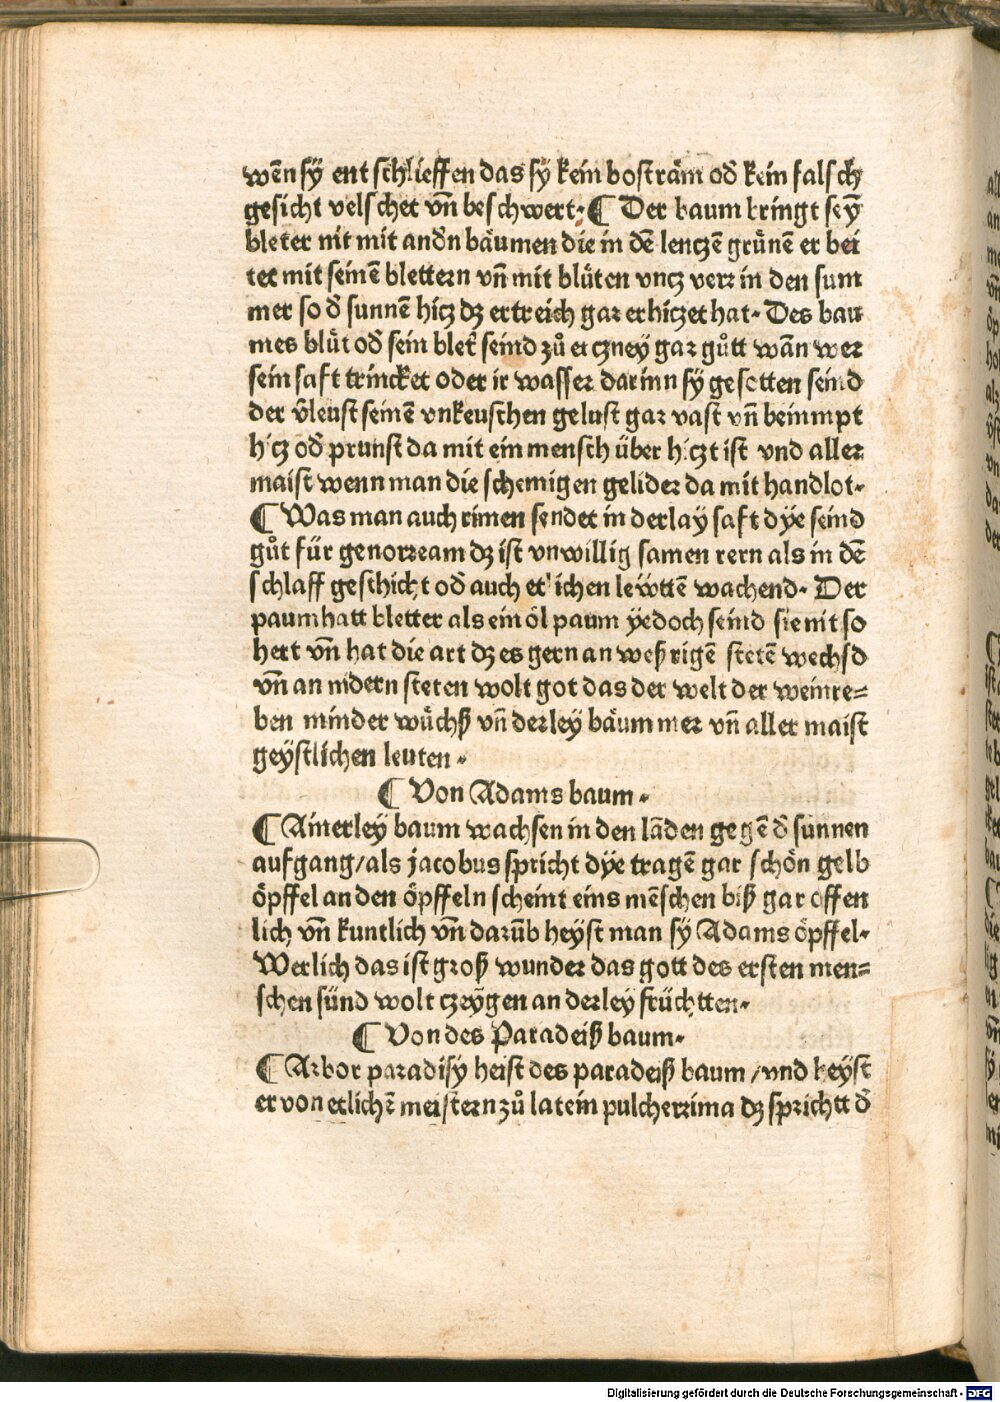 wen̄ sÿ ent schlieffen das sÿ kein bosträm od̄ kein falsch
gesicht velschet vn̄ beschwert· ¶ Der baum bringt seȳ
bleter nit mit and̄n bäumen die in dē lenczē grünē er bei
tet mit seinē blettern vn̄ mit blüten vncz verr in den sum
mer so d̄ sunnē hicz dz ertreich gar erhiczet hat· Des bau
mes blüt od̄ sein blet̄ seind zů erczney gar gůtt wān wer
sein saft trincket oder ir wasser darinn sÿ gesotten seind
der v̄leust seinē vnkeuschen gelust gar vast vn̄ benimpt
hicz od̄ prunst da mit ein mensch über hiczt ist vnd aller
maist wenn man die schemigen gelider da mit handlot·
¶ Was man auch rimen sendet in derlaÿ saft dÿe seind
gůt für genorream dz ist vnwillig samen rern als in dē
schlaff geschicht od̄ auch etlichen lewttē wachend· Der
paum hatt bletter als ein öl paum ÿedoch seind sie nit so
hert vn̄ hat die art dz es gern an weßrigē stetē wechsd
vn̄ an nidern steten wolt got das der welt der weinre=
ben minder wüchß vn̄ derley bäum mer vn̄ aller maist
geÿstlichen leuten·
¶ Von Adams baum·
¶ Ainerley baum wachsen in den lāden gegē d̄ sunnen
aufgang/als jacobus spricht dÿe tragē gar schön gelb
öpffel an den öpffeln scheint eins mēschen biß gar offen
lich vn̄ kuntlich vn̄ darūb heÿst man sÿ Adams öpffel·
Werlich das ist groß wunder das gott des ersten men=
schen sünd wolt czeÿgen an derley früchtten·
¶ Von des Paradeiß baum·
¶ Arbor paradisy heist des paradeiß baum /vnd heÿst
er von etlichē meistern zů latein pulcherrima dz sprichtt d̄
Digitalisierung gefördert durch die Deutsche Forschungsgemeinschaft - DFG